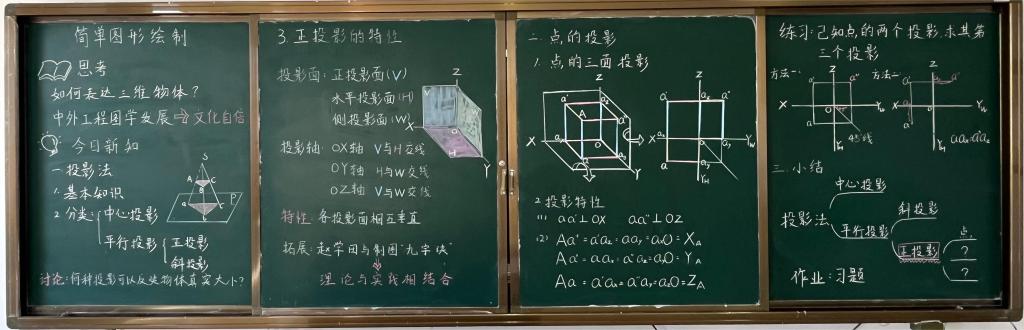 简单图形绘制
思考
如何表达三维物体？
中外工程图学发展⇒文化自信
今日新知
一 投影法
1. 基本知识
2 分类: 中心投影
平行投影 正投影
斜投影
S
A C
B
A C
B
P
讨论: 何种投影可以反映物体真实大小？
3. 正投影的特性
投影面: 正投影面(V)
水平投影面(H)
侧投影面(W)
投影轴: OX轴 V与H交线
OY轴 H与W交线
OZ轴 V与W交线
Z
V
X
O
H
Y
特性: 各投影面相互垂直
拓展: 赵学田与制图"九字诀"
理论与实践相结合
二. 点的投影
1. 点的三面投影
Z
A
X
Y
Z
X
YW
YH
2 投影特性
(1) aa'⊥OX a'a"⊥OZ
(2) Aa"=a'az=aay=axO=XA
Aa'=aax=a"az=ayO=YA
Aa=a'ax=a"ay=azO=ZA
练习: 已知点的两个投影, 求其第
三个投影
方法一:
Z
X
O
YW
YH
45°线
方法二:
Z
X
YW
YH
三. 小结
投影法
中心投影
平行投影
斜投影
正投影
点
?
?
作业: 习题